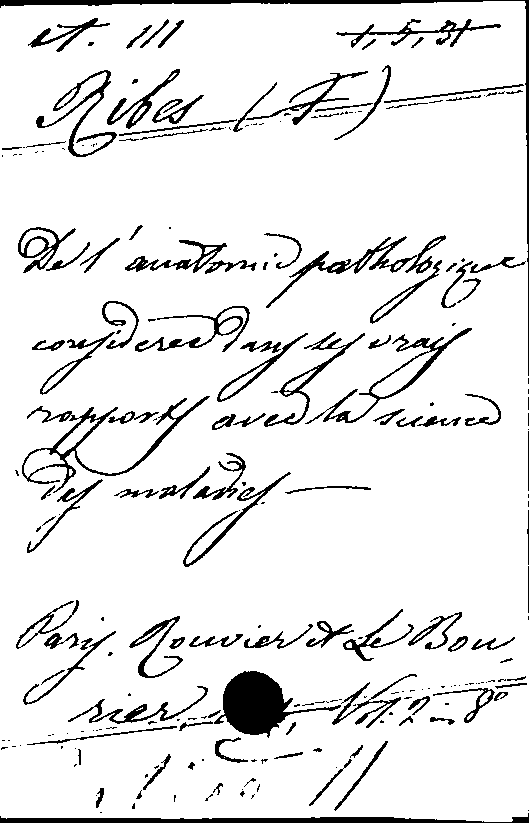 et. III 1, 5, 31
Ribes (F)
De l'anatomie pathologique
considérée dans ses vrais
rapports avec la science
des maladies —
Paris. Rouvier et Le Bou-
rier, Vol. 2 in 8°